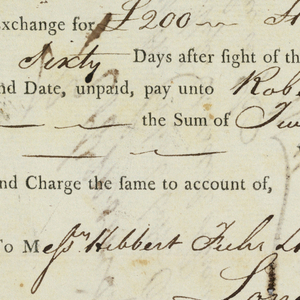 Exchange for £200
Sixty Days after ſight of th
nd Date, unpaid, pay unto Robe
the Sum of Tw
nd Charge the ſame to account of,
To Meſsrs Hibbert Fuhr
Lon